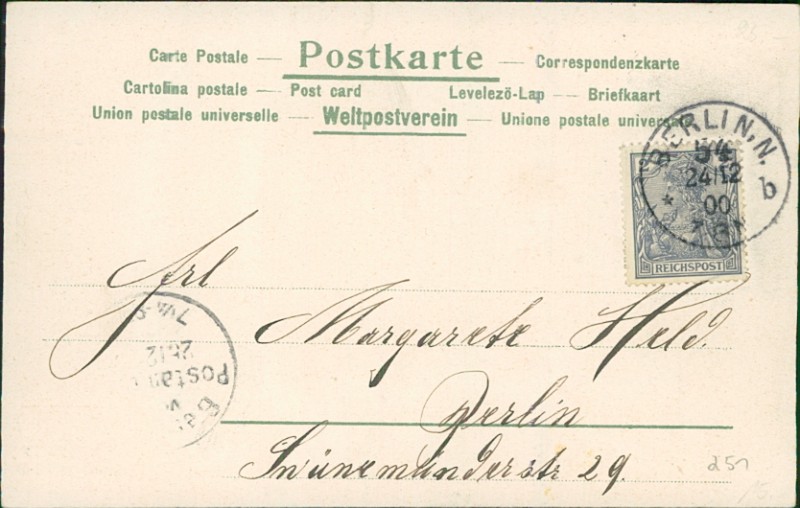 Carte Postale — Postkarte — Correspondenzkarte
Cartolina postale — Post card Levelezö-Lap — Briefkaart
Union postale universelle — Weltpostverein — Unione postale univers
BERLIN, N.
54
24/12
00
* b
REICHSPOST
Frl
Margarete Held.
Berlin
Swinemünderstr 29.
7¼-8
25.12
Posta
Be
251